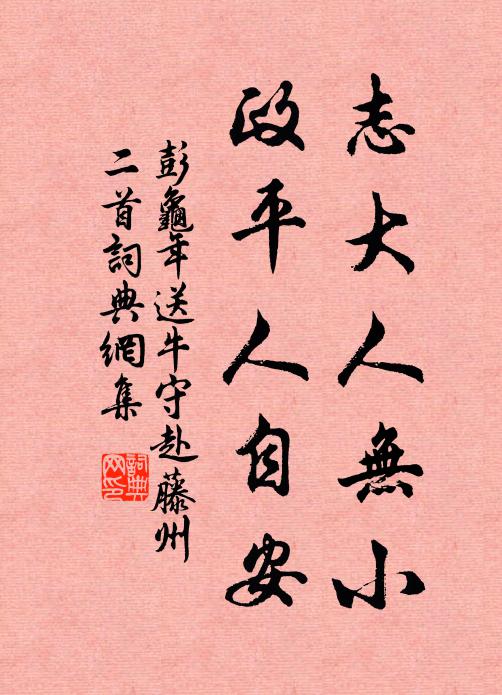 志大人無小
政平人自安
彭龜年送牛守赴藤州
二首詞典網集
詞典
网印